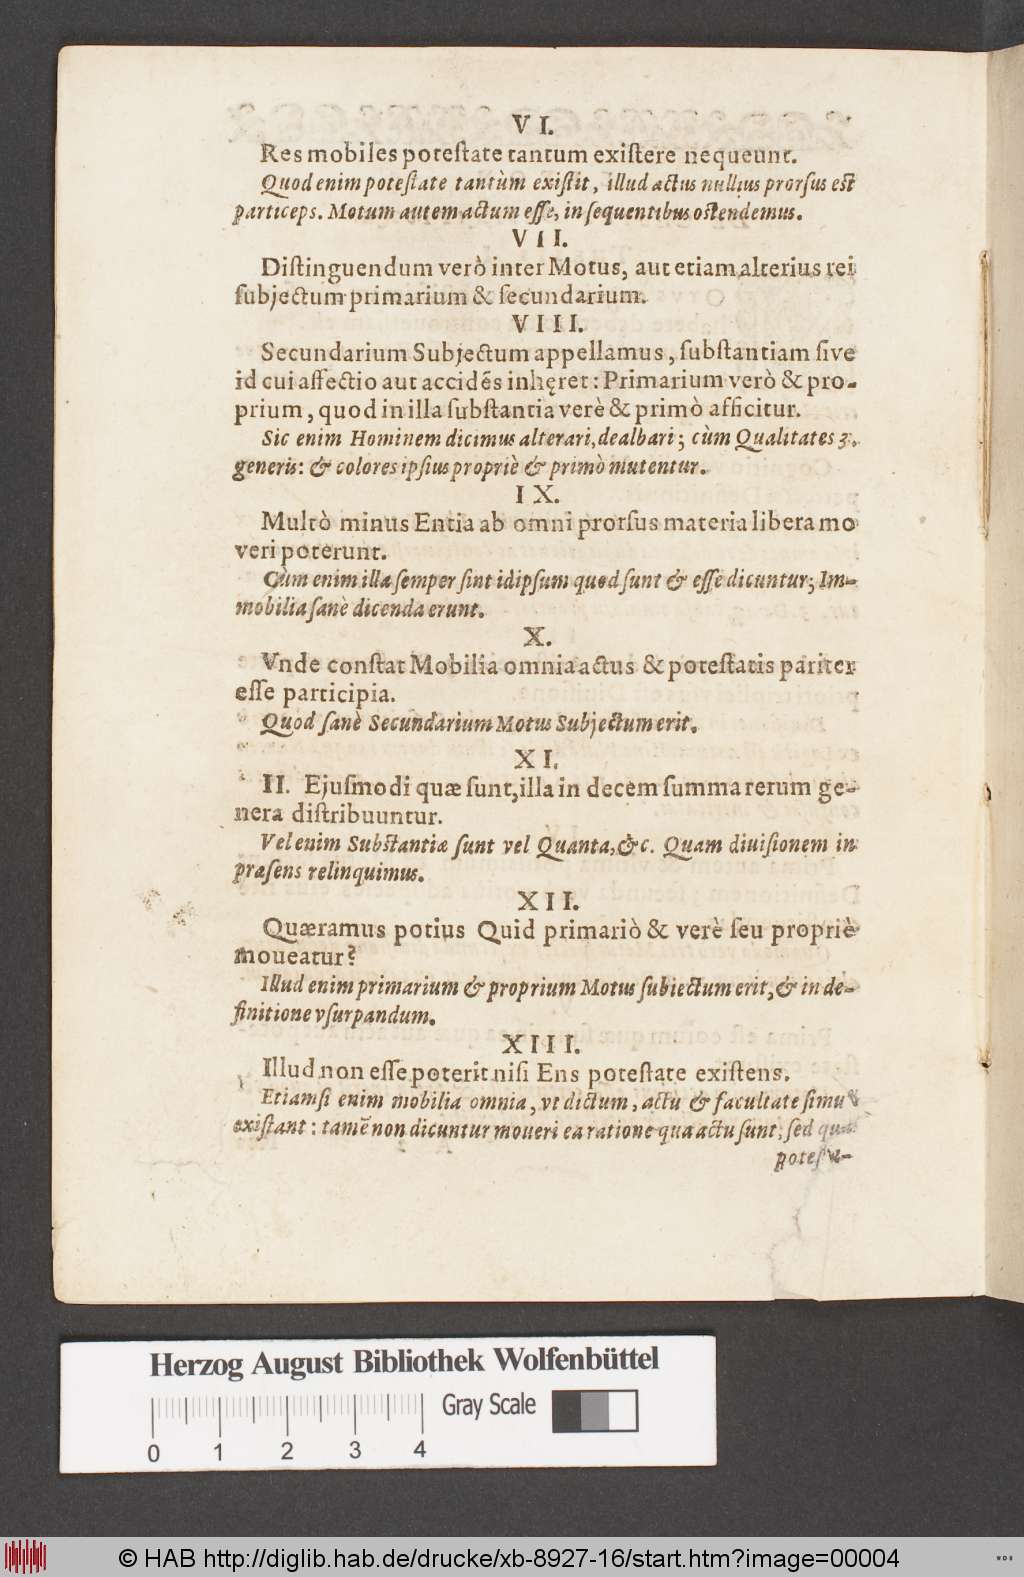 VI.
Res mobiles poteſtate tantum exiſtere nequeunt.
Quod enim poteſtate tantùm exiſtit, illud actus nullius prorſus eſt
particeps. Motum autem actum eſſe, in ſequentibus oſtendemus.
VII.
Diſtinguendum verò inter Motus, aut etiam alterius rei
ſubjectum primarium & ſecundarium.
VIII.
Secundarium Subjectum appellamus, ſubſtantiam ſive
id cui affectio aut accidẽs inhęret: Primarium verò & pro-
prium, quod in illa ſubſtantia verè & primò afficitur.
Sic enim Hominem dicimus alterari, dealbari; cùm Qualitates 3.
generis: & colores ipſius propriè & primò mutentur.
IX.
Multò minus Entia ab omni prorſus materia libera mo
veri poterunt.
Cùm enim illa ſemper ſint id ipſum quod ſunt & eſſe dicuntur; Im-
mobilia ſanè dicenda erunt.
X.
Vnde conſtat Mobilia omnia actus & poteſtatis pariter
eſſe participia.
Quod ſanè Secundarium Motus Subjectum erit.
XI.
II. Ejuſmodi quæ ſunt, illa in decem ſumma rerum ge-
nera diſtribuuntur.
Vel enim Subſtantiæ ſunt vel Quanta, &c. Quam diuiſionem in
præſens relinquimus.
XII.
Quæramus potius Quid primariò & verè ſeu propriè
moueatur?
Illud enim primarium & proprium Motus ſubiectum erit, & in de-
finitione vſurpandum.
XIII.
Illud non eſſe poterit niſi Ens poteſtate exiſtens.
Etiamſi enim mobilia omnia, vt dictum, actu & facultate ſimul
exiſtant: tamẽ non dicuntur moueri ea ratione qua actu ſunt, ſed qua
Herzog August Bibliothek Wolfenbüttel
Gray Scale
0 1 2 3 4
© HAB http://diglib.hab.de/drucke/xb-8927-16/start.htm?image=00004